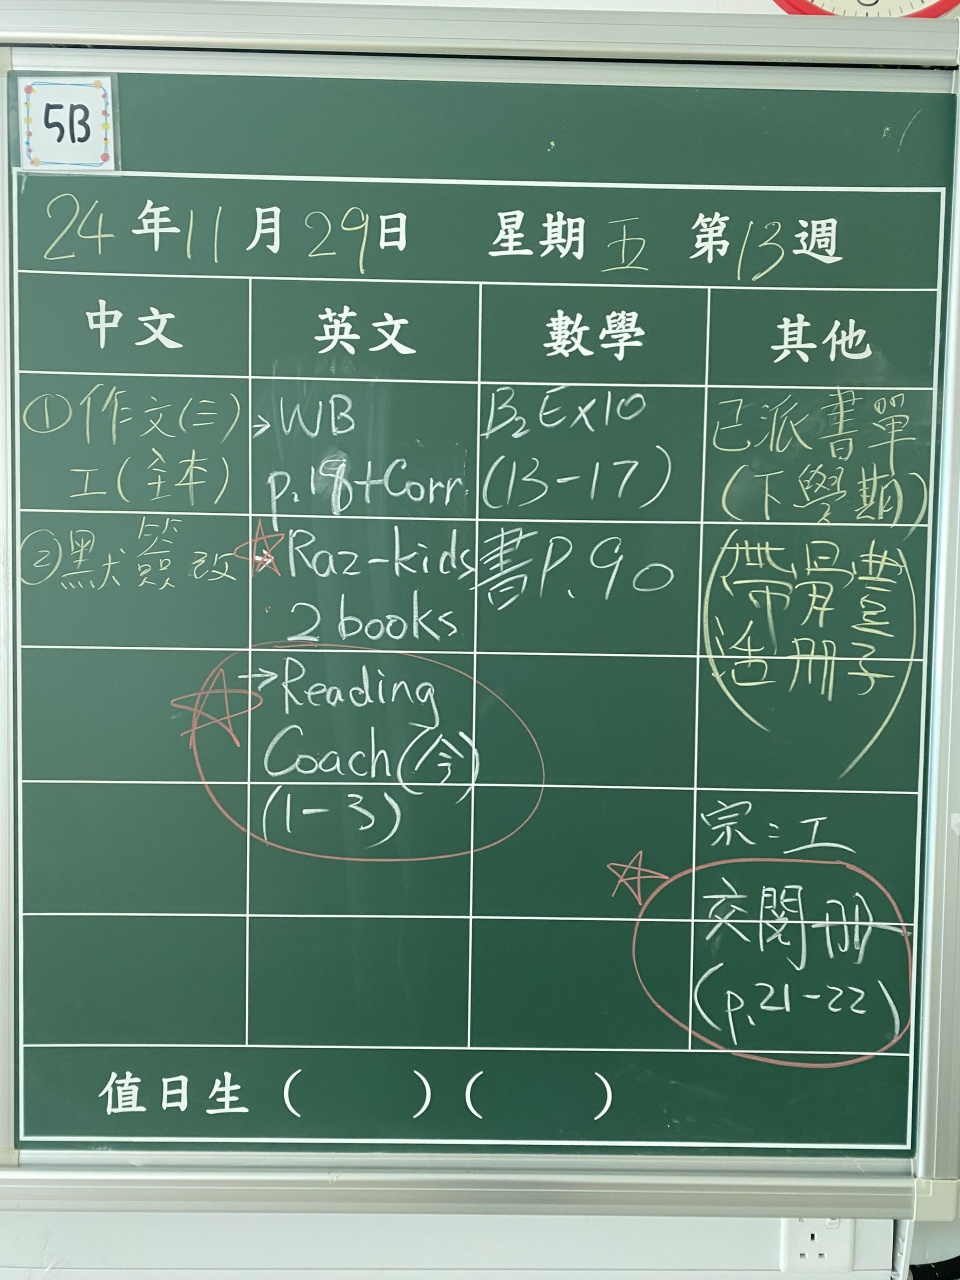 5B
24年11月29日 星期五 第13週
中文 英文 數學 其他
①作文(三)
工(全本)
②默簽改
→WB
p.18+Corr
→Raz-kids
2 books
→Reading
Coach(今)
(1-3)
B2 Ex10
(13-17)
書P.90
已派書單
(下學期)
(帶骨豐
活冊子)
宗:工
交閱冊
(p.21-22)
值日生( )( )